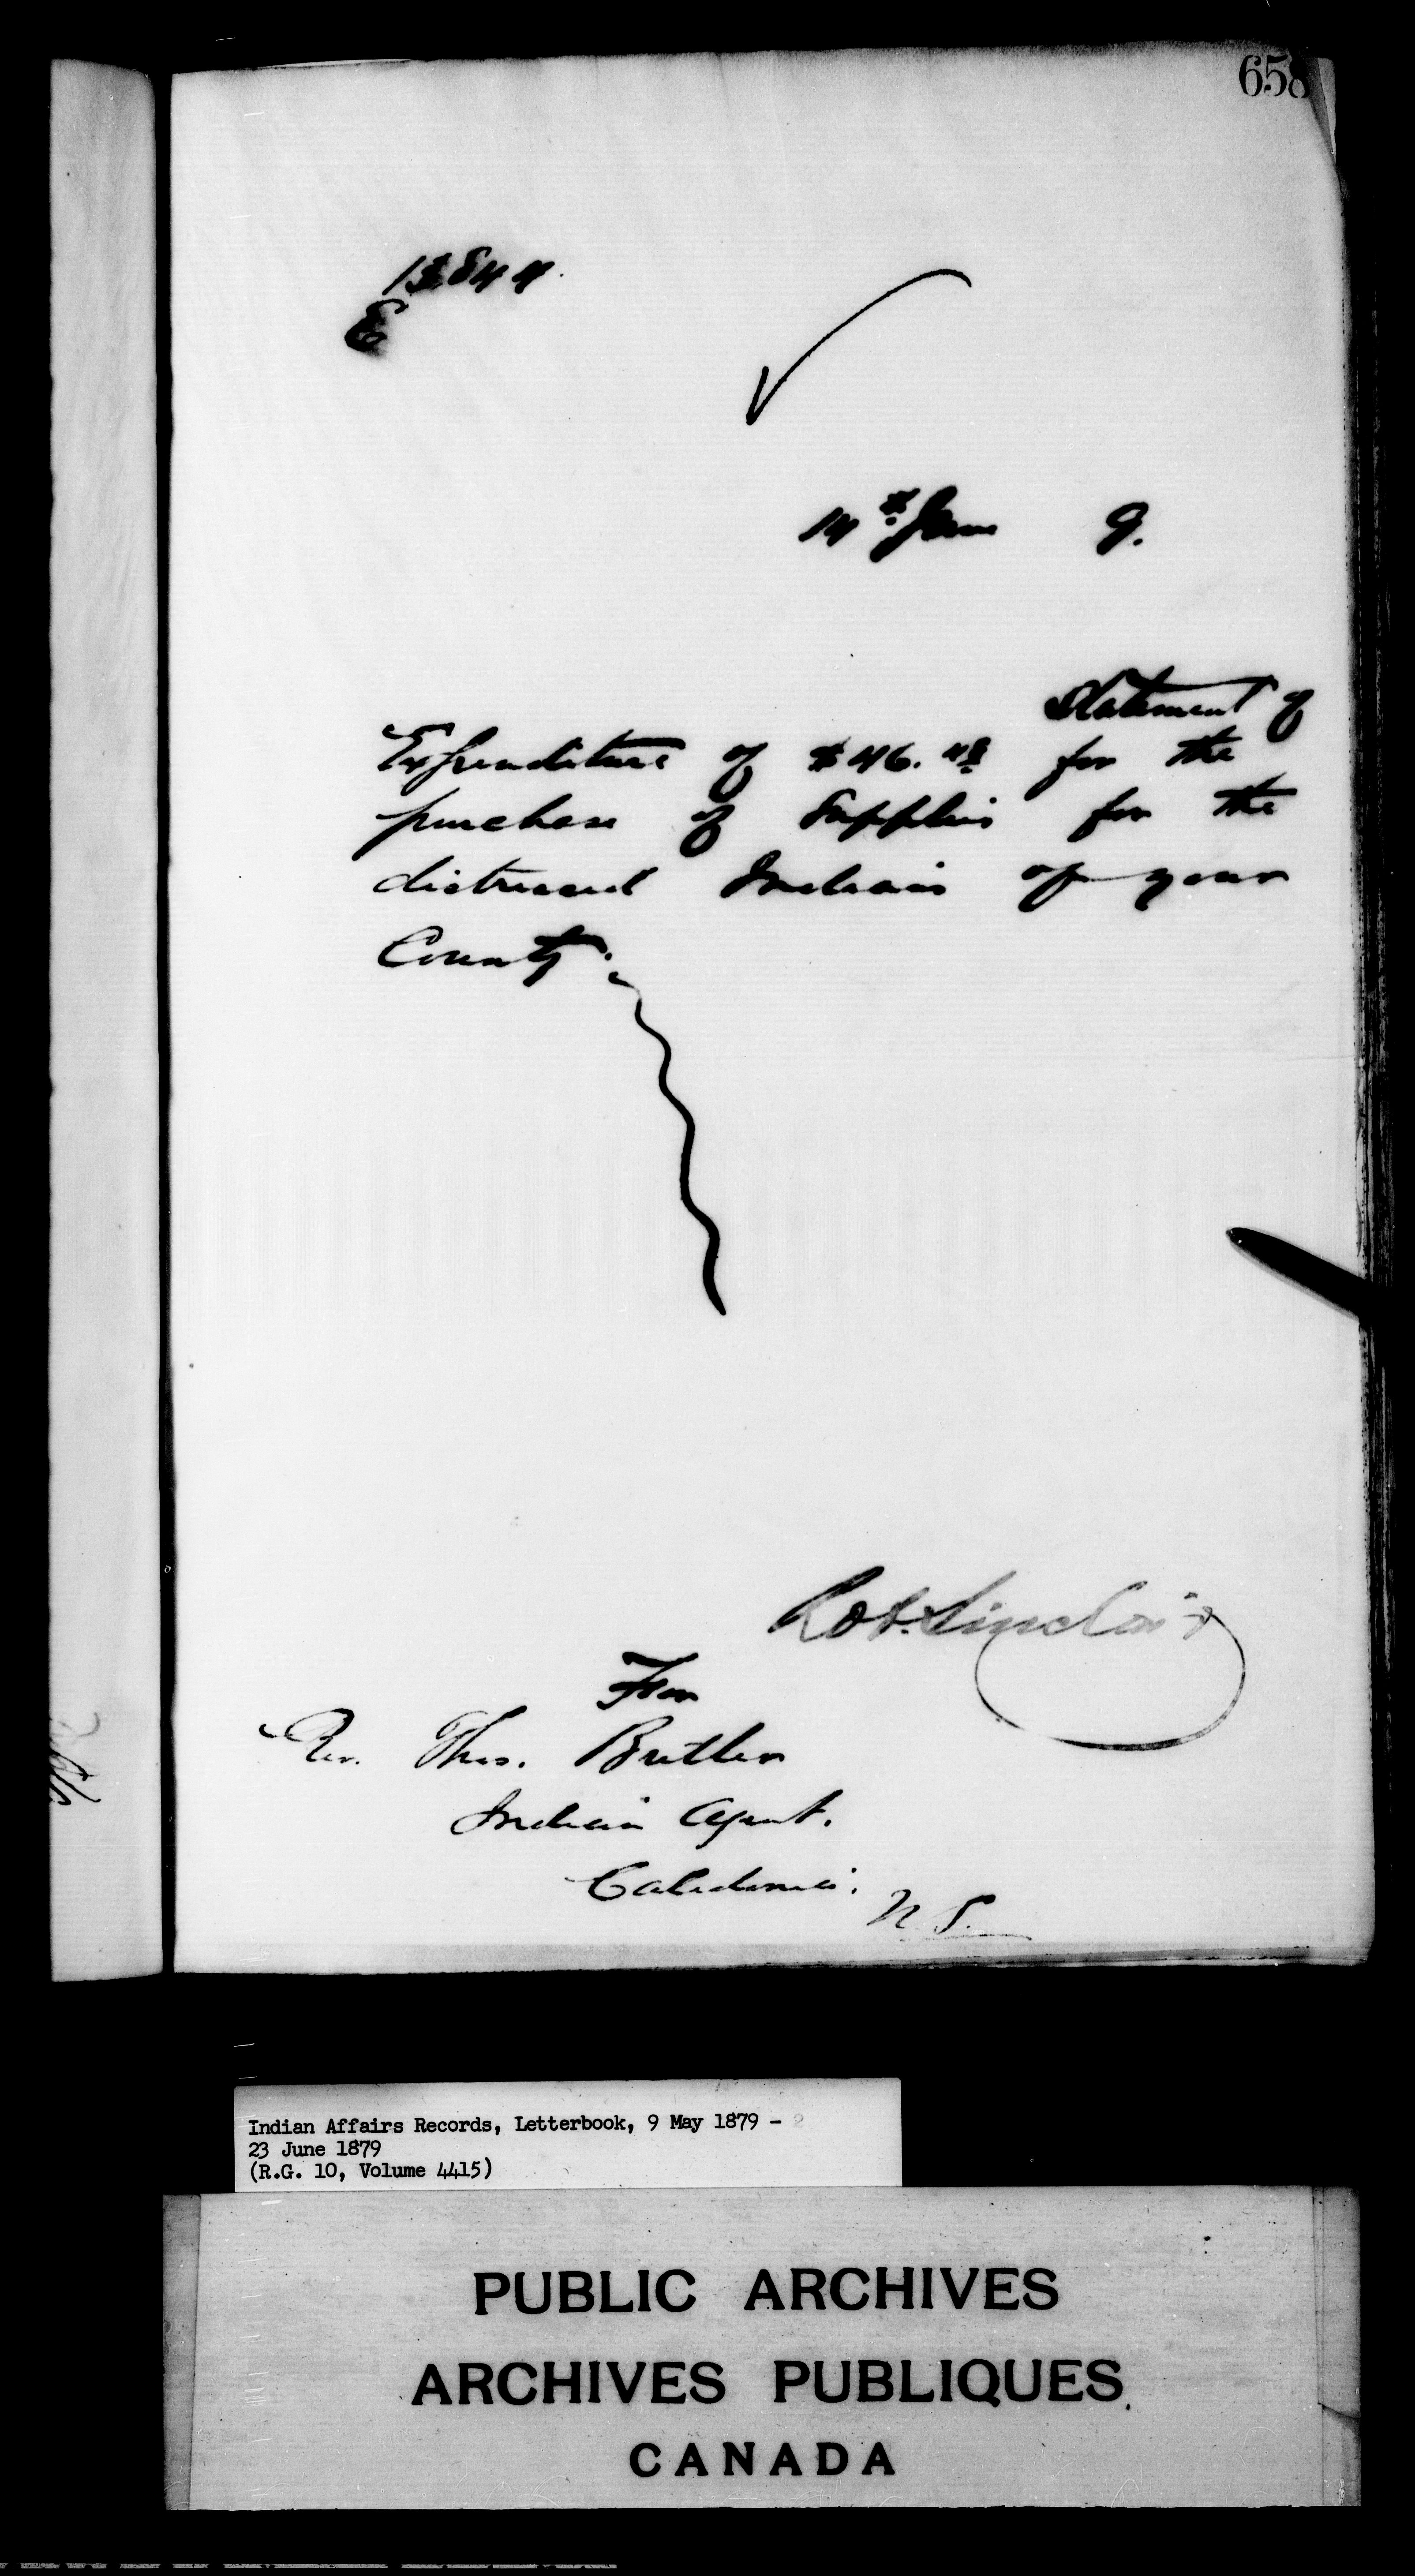 658
E
14th June 9.
Statement of
Expenditure of $46.48 for the
purchase of Supplies for the
distressed Indians of your
County.
Robt. Sinclair
For
Rev. Thos. Butler
Indian Agent.
Caledonia.
N.S.
Indian Affairs Records, Letterbook, 9 May 1879 -
23 June 1879
(R.G. 10, Volume 4415)
PUBLIC ARCHIVES
ARCHIVES PUBLIQUES
CANADA